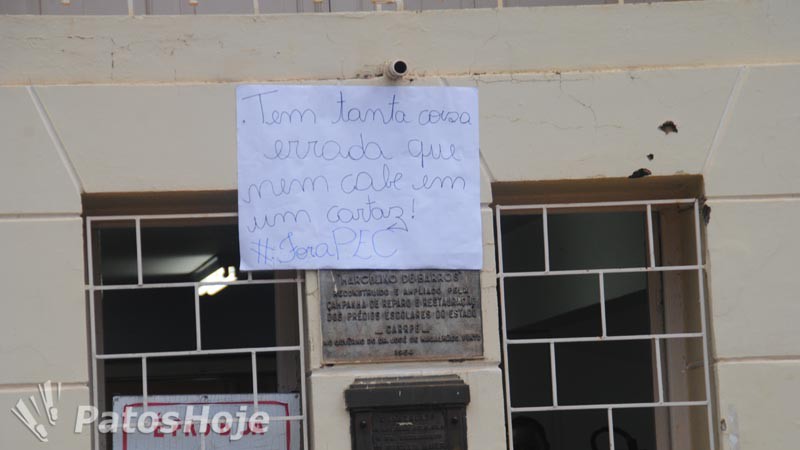 . Tem tanta coisa
errada que
nem cabe em
um cartaz!
#ForaPEC
MARCOLINO DE BARROS
RECONSTRUIDO E AMPLIADO PELA
CAMPANHA DE REPARO E RESTAURAÇÃO
DOS PRÉDIOS ESCOLARES DO ESTADO
— CARRPE —
NO GOVERNO DO DR. JOSÉ DE MAGALHÃES PINTO
1964
PatosHoje